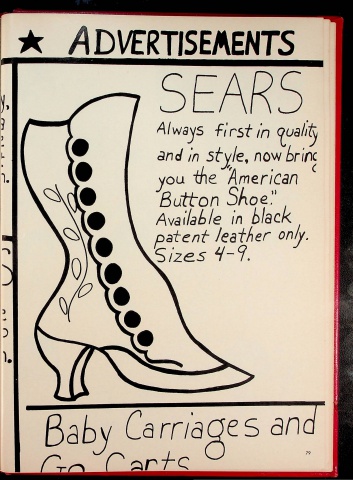 ★ ADVERTISEMENTS
SEARS
Always first in quality
and in style, now bring
you the "American
Button Shoe."
Available in black
patent leather only.
Sizes 4-9.
Baby Carriages and
Go Carts
79